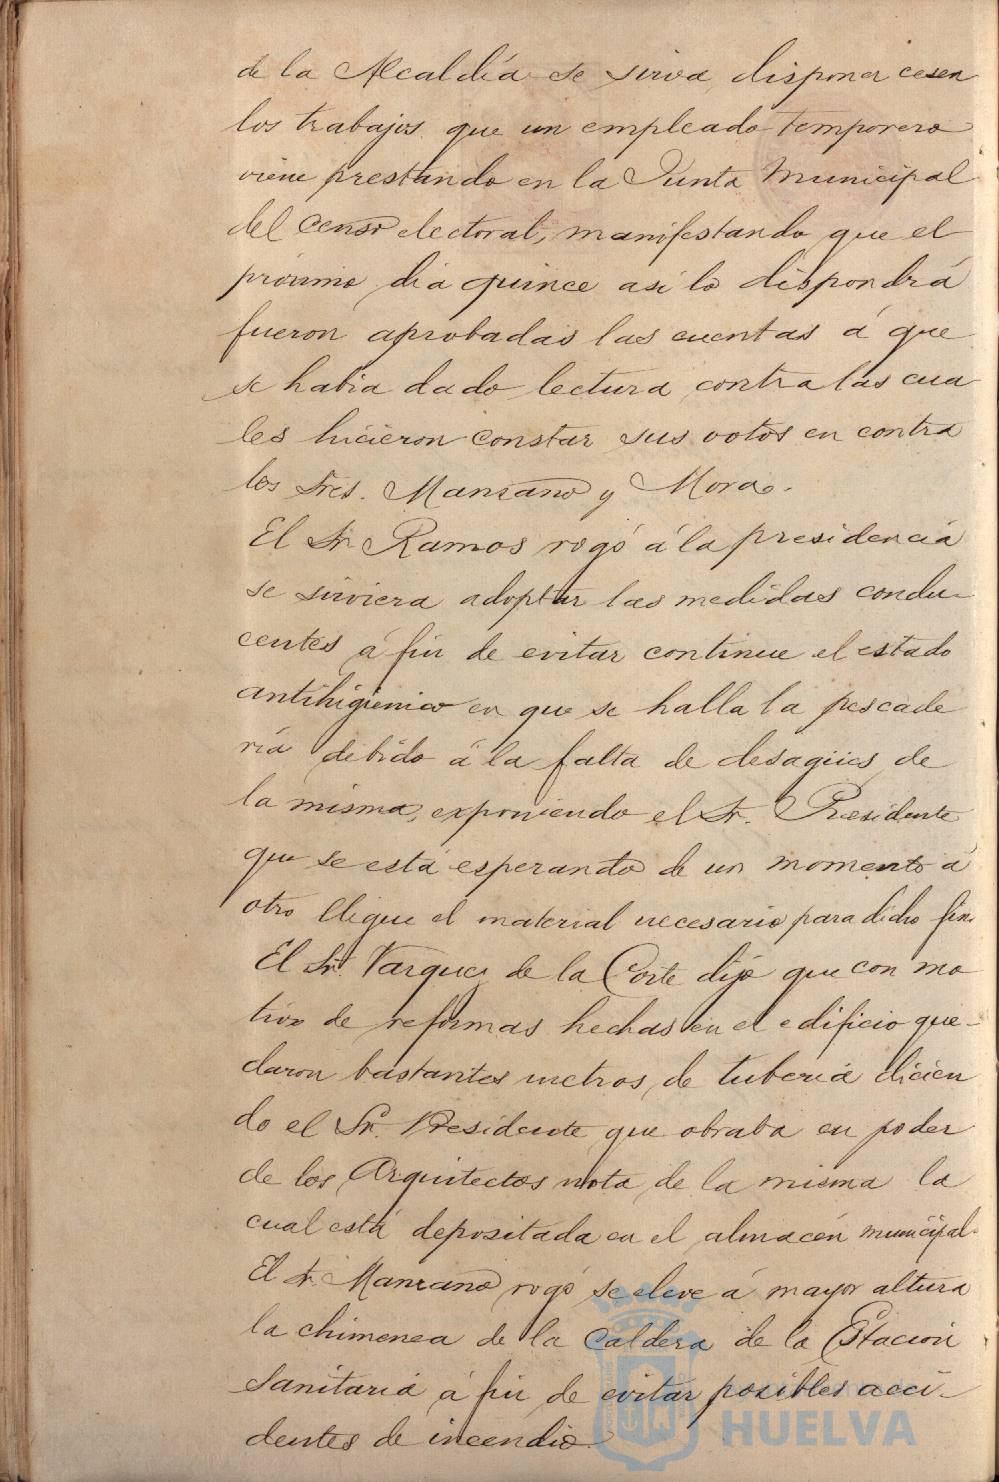 de la Alcaldía se sirva disponer cesen
los trabajos que un empleado temporero
viene prestando en la Junta Municipal
del censo electoral, manifestando que el
próximo dia quince asi lo dispondrá
fueron aprobadas las cuentas á que
se habia dado lectura contra las cua
les hicieron constar sus votos en contra
los Sres. Manzano y Mora.
El Sr. Ramos rogó á la presidencia
se sirviera adoptar las medidas condu-
centes á fin de evitar continue el estado
antihigienico en que se halla la pescade
ría debido á la falta de desagües de
la misma, exponiendo el Sr. Presidente
que se está esperando de un momento á
otro llegue el material necesario para dicho fin.
El Sr. Vazquez de la Corte dijo que con mo
tivo de reformas hechas en el edificio que-
daron bastantes metros de tubería dicien
do el Sr. Presidente que obraba en poder
de los Arquitectos nota de la misma la
cual está depositada en el almacén municipal.
El Sr. Manzano rogó se eleve á mayor altura
la chimenea de la caldera de la Estación
Sanitaria á fin de evitar posibles acci-
dentes de incendio.
HUELVA